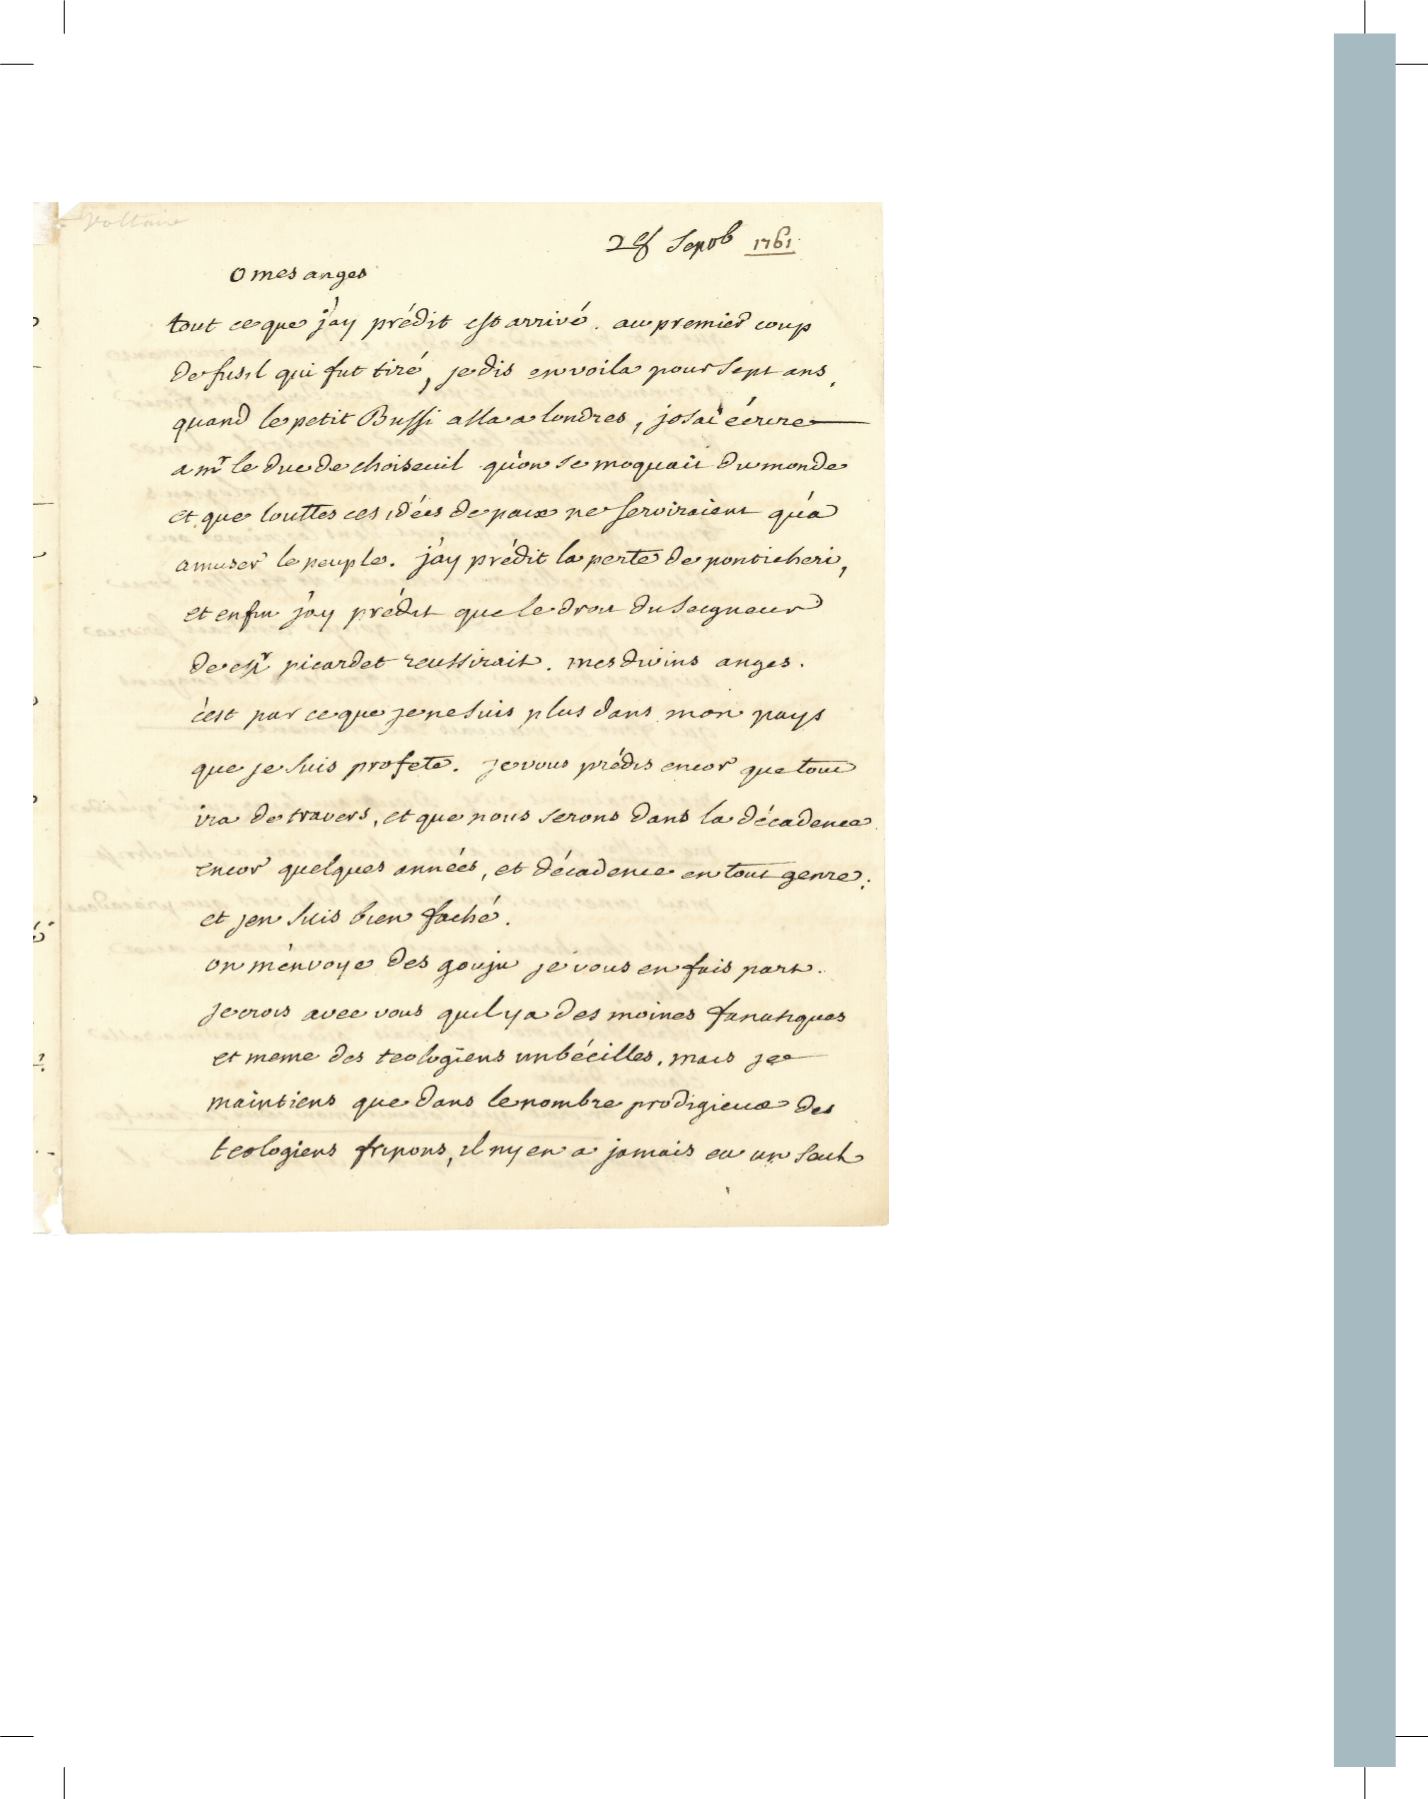 Voltaire
28 Sepb 1761
o mes anges
tout ce que j'ay prédit est arrivé. au premier coup
de fusil qui fut tiré, je dis en voila pour sept ans,
quand le petit Bussi alla a londres, j'osai écrire
a mr le duc de choiseuil qu'on se moquait du monde
et que touttes ces idées de paix ne serviraient qu'a
amuser le peuple. j'ay prédit la perte de ponticheri,
et enfin j'ay prédit que le droit du seigneur
de mr picardet reussirait. mes divins anges.
c'est par ce que je ne suis plus dans mon pays
que je suis profete. je vous prédis encor que tout
ira de travers, et que nous serons dans la décadence
encor quelques années, et décadence en tout genre;
et j'en suis bien faché.
on m'envoye des gouju je vous en fais part.
je crois avec vous qu'il y a des moines fanatiques
et meme des teologiens imbécilles. mais je
maintiens que dans le nombre prodigieux des
teologiens fripons, il ny en a jamais eu un seul